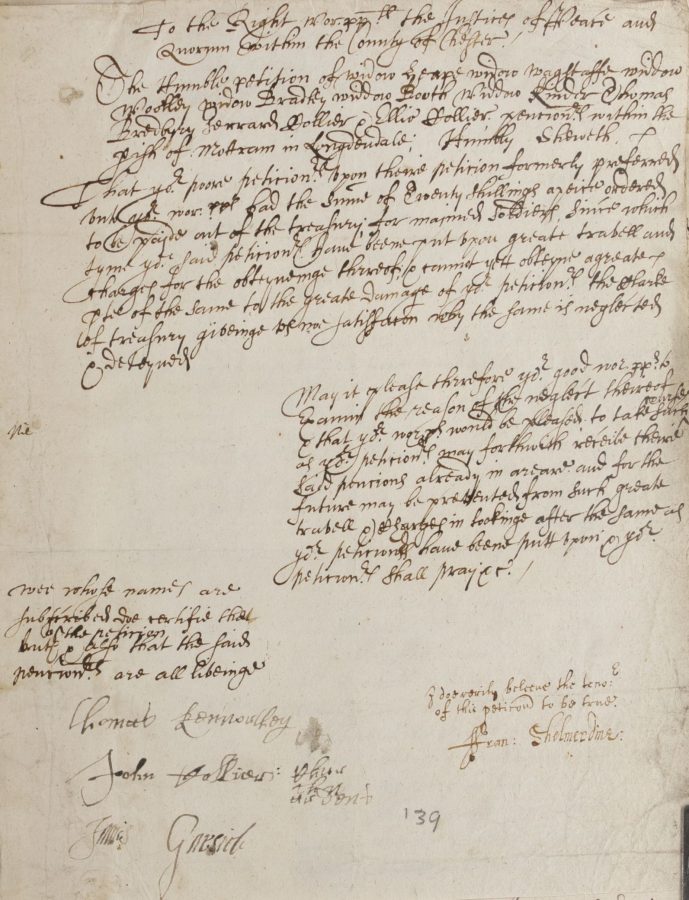 To the Right wor:pp:ll the Justices of Peace and
Quorum within the County of Chester./
The Humble petition of widow Heape widow Wagstaffe widow
Woolley widow Bradley widdow Booth widdow Kinder Thomas
Bredbury Jerrard Collier & Ellis Collier pencion:rs within the
pish of Mottram in Longdendale; Humbly Sheweth
That yo:r poore peticion:rs upon theire petition formerly preferred
unto yo:r wor:pps had the Sume of Twenty Shillings apeice ordered
to be payde out of the treasury for maymed Soldiers, Since which
tyme yo:r said peticion:rs have beene put upon greate travell and
charges for the obteyneinge thereof & cannot yett obteyne a greate
pte of the same to the greate damage of yo:r peticion:rs the Clarke
of treasury giveinge us noe satisfaccon why the same is neglected
& deteyned
May it please therefore yo:r good wor:pps to
Examin the reason of the neglect thereof
& that yo:r wor:pps would be pleased to take such course
as yo:r peticion:rs may forthwith receive theire
said pencions already in areare and for the
future may be prevented from such greate
travell & Charges in lookinge after the same as
yo:r peticion:rs have beene putt upon & yo:r
peticion:rs shall pray &c:/
wee whose names are
subscribed doe certifie that
of the peticion
& also that the said
pencion:rs are all liveinge
I doe verily beleeve the teno:r
of this peticon to be true:
Thomas
ffran: Shelmerdine:
John Collier:
James Garsid
139